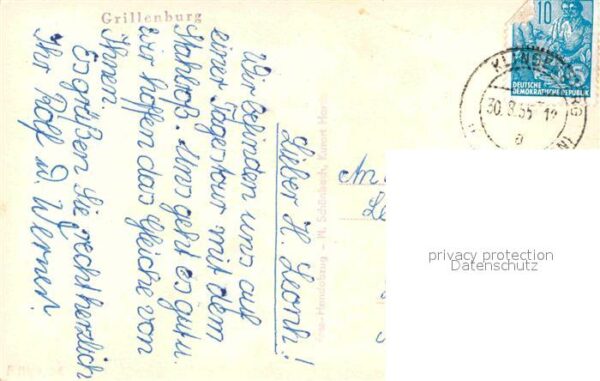 Grillenburg
Lieber H. Leonh!
Wir befinden uns auf
einer Tagestour mit dem
Motorrad. Uns geht es gut u.
wir hoffen das Gleiche von
Ihnen
Es grüßen Sie recht herzlich
Ihr Rolf u. Werner!
M. Schönbach, Kurort
10
DEUTSCHE
DEMOKRATISCHE REPUBLIK
30.8.55
a
An
privacy protection
Datenschutz